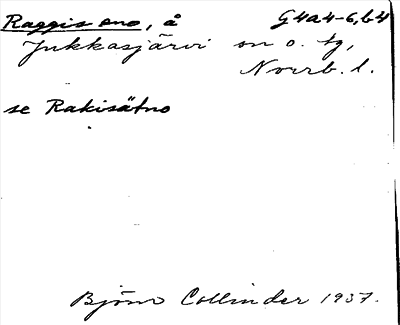 Raggis eno, å G4a4-6,b4
Jukkasjärvi sn o. tg,
Norrb. l.
se Rakisätno
Björn Collinder 1937.